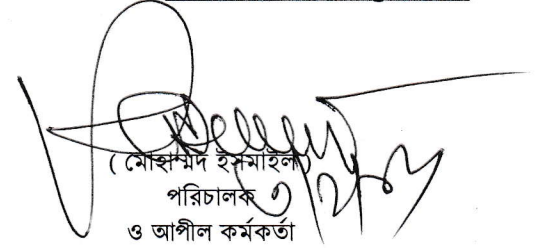 ( মোহাম্মদ ইসমাইল )
পরিচালক
ও আপীল কর্মকর্তা